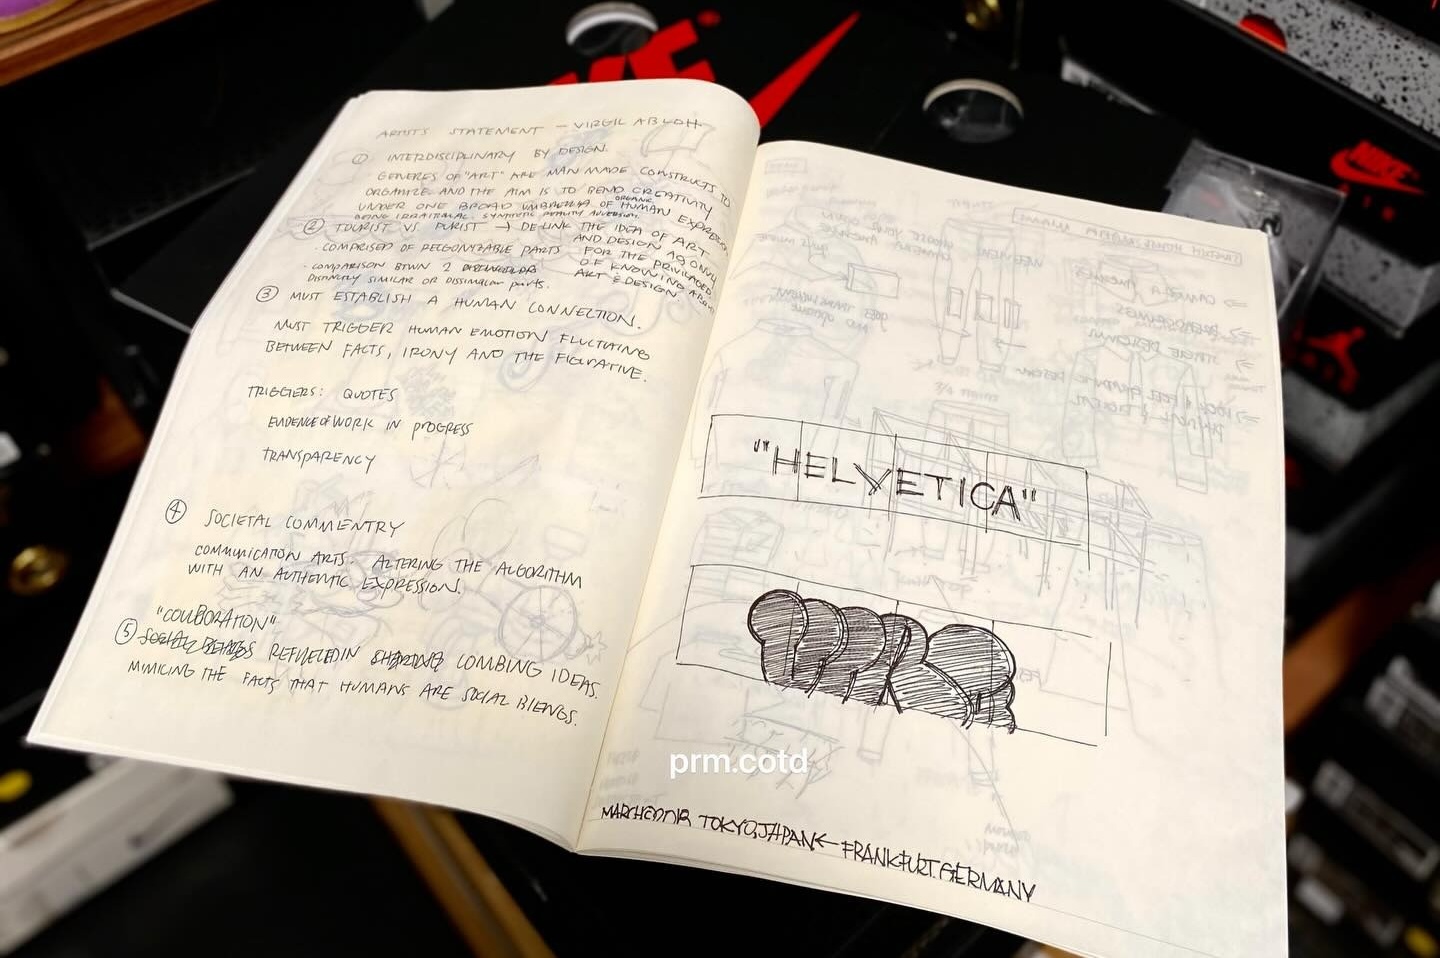 ARTISTS STATEMENT — VIRGIL ABLOH
① INTERDISCIPLINARY BY DESIGN.
GENERES OF "ART" ARE MAN MADE CONSTRUCTS TO
ORGANIZE AND THE AIM IS TO BEND CREATIVITY
UNDER ONE BROAD UMBRELLA OF ORGANIC HUMAN EXPRESSION
BEING IRRATIONAL. SYNTHETIC REALITY
② TOURIST VS PURIST → DE-LINK THE IDEA OF ART
AND DESIGN AS ONLY
FOR THE PRIVILAGED
OF KNOWING
ART & DESIGN.
· COMPRISED OF RECGONIZABLE PARTS
· COMPARISON BTWN 2
DISTINCTLY SIMILAR OR DISSIMILAR parts.
③ MUST ESTABLISH A HUMAN CONNECTION.
MUST TRIGGER HUMAN EMOTION FLUCTUATING
BETWEEN FACTS, IRONY AND THE FIGURATIVE.
TRIGGERS: QUOTES
EVIDENCE OF WORK IN PROGRESS
TRANSPARENCY
④ SOCIETAL COMMENTRY
COMMUNICATION ARTS. ALTERING THE ALGORITHM
WITH AN AUTHENTIC EXPRESSION.
"COLLBORATION"
⑤ REFLECTED IN COMBING IDEAS.
MIMICING THE FACTS THAT HUMANS ARE SOCIAL BLENDS.
"HELVETICA"
prm.cotd
TOKYO, JAPAN ← FRANKFURT, GERMANY
NIKE